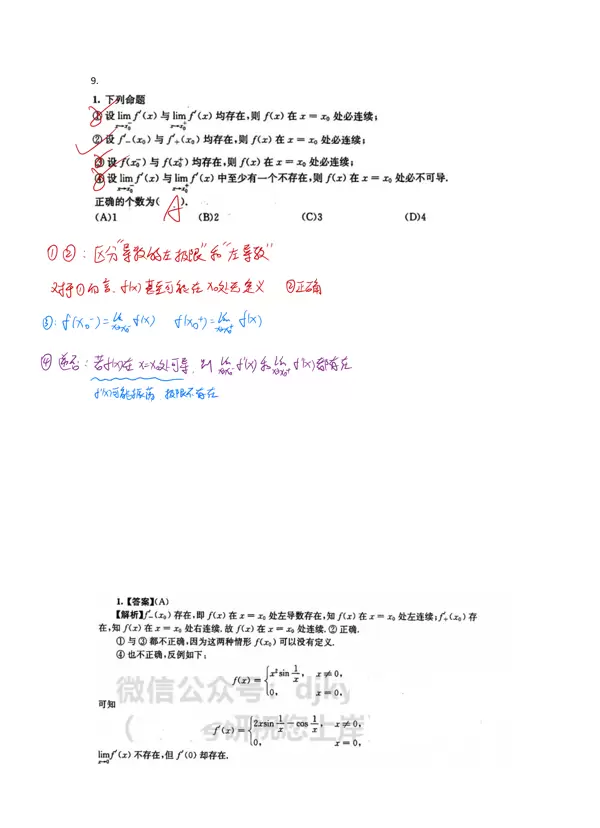 9.
1. 下列命题
① 设 lim f′(x) 与 lim f′(x) 均存在,则 f(x) 在 x = x₀ 处必连续;
x→x₀⁻ x→x₀⁺
② 设 f′₋(x₀) 与 f′₊(x₀) 均存在,则 f(x) 在 x = x₀ 处必连续;
③ 设 f(x₀⁻) 与 f(x₀⁺) 均存在,则 f(x) 在 x = x₀ 处必连续;
④ 设 lim f′(x) 与 lim f′(x) 中至少有一个不存在,则 f(x) 在 x = x₀ 处必不可导.
x→x₀⁻ x→x₀⁺
正确的个数为( A ).
(A)1 (B)2 (C)3 (D)4
①②: 区分"导数的左极限"和"左导数"
对于①而言, f(x)甚至可能在x₀处无定义 ②正确
③: f(x₀⁻)=lim x→x₀⁻ f(x) f(x₀⁺)=lim x→x₀⁺ f(x)
④ 逆否: 若f(x)在x=x₀处可导, 则 lim x→x₀⁻ f′(x)和lim x→x₀⁺ f′(x)都存在
f′(x)可能振荡 极限不存在
1.【答案】(A)
【解析】f′₋(x₀) 存在,即 f(x) 在 x = x₀ 处左导数存在,知 f(x) 在 x = x₀ 处左连续;f′₊(x₀) 存
在,知 f(x) 在 x = x₀ 处右连续. 故 f(x) 在 x = x₀ 处连续. ② 正确.
① 与 ③ 都不正确,因为这两种情形 f(x₀) 可以没有定义.
④ 也不正确,反例如下:
f(x) = { x² sin 1/x, x ≠ 0,
0, x = 0,
可知
f′(x) = { 2x sin 1/x − cos 1/x, x ≠ 0,
0, x = 0,
lim f′(x) 不存在,但 f′(0) 却存在.
x→0
微信公众号: djky
研祝您上岸